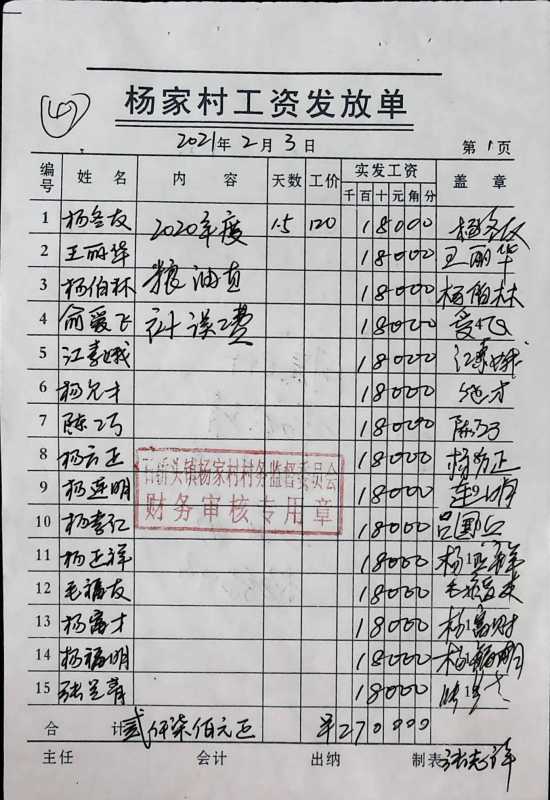 (四)
杨家村工资发放单
2021年2月3日 第1页
编号 姓名 内容 天数 工价 实发工资 盖章
千百十元角分
1 杨冬友 2020年度 1.5 120 18000 杨冬友
2 王丽华 18000 王丽华
3 杨伯林 粮油直 18000 杨伯林
4 俞爱飞 补误工费 18000 爱飞
5 江素娥 18000 江素娥
6 杨允才 18000
7 陈巧 18000 陈巧
8 杨方正 18000 杨方正
石桥头镇杨家村村务监督委员会
9 杨连明 18000 连明
财务审核专用章
10 杨素仁 18000
11 杨正祥 18000 杨正祥
12 毛福友 18000 毛福友
13 杨富才 18000 杨富财
14 杨福明 18000 杨福明
15 张兰青 18000
合计 贰仟柒佰元正 ¥270000
主任 会计 出纳 制表 张志祥